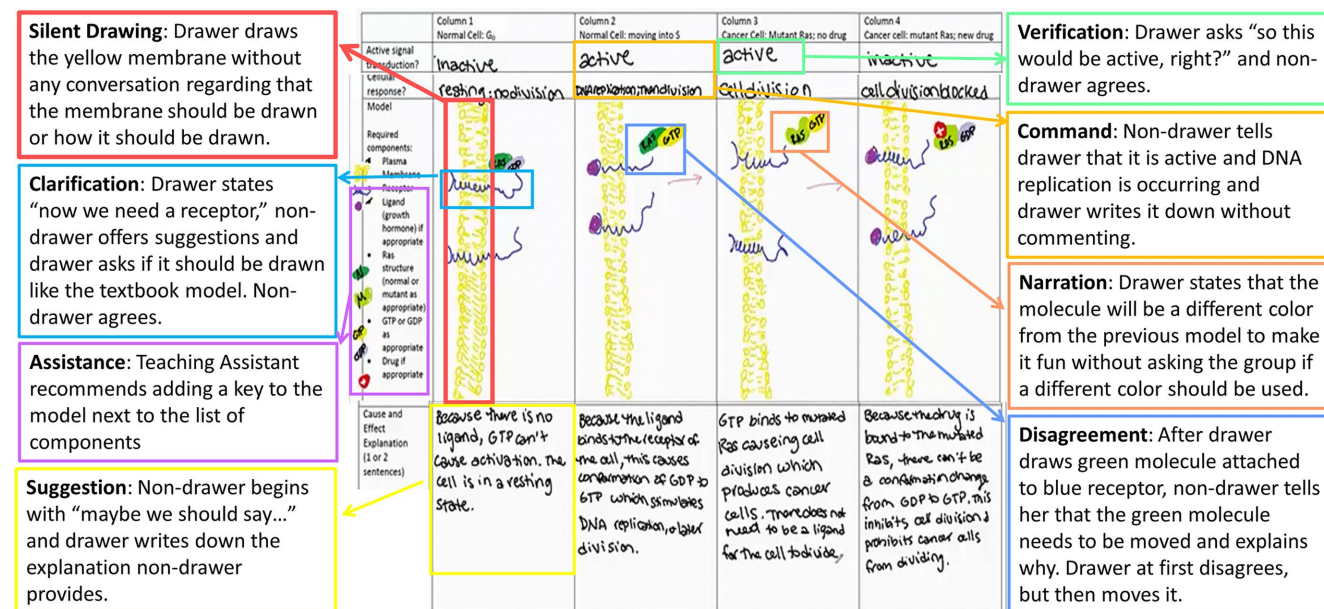 Silent Drawing: Drawer draws
the yellow membrane without
any conversation regarding that
the membrane should be drawn
or how it should be drawn.
Clarification: Drawer states
“now we need a receptor,” non-
drawer offers suggestions and
drawer asks if it should be drawn
like the textbook model. Non-
drawer agrees.
Assistance: Teaching Assistant
recommends adding a key to the
model next to the list of
components
Suggestion: Non-drawer begins
with “maybe we should say…”
and drawer writes down the
explanation non-drawer
provides.
Column 1
Normal Cell: G0
Column 2
Normal Cell: moving into S
Column 3
Cancer Cell: Mutant Ras; no drug
Column 4
Cancer cell: mutant Ras; new drug
Active signal
transduction?
inactive
active
active
inactive
Cellular
response?
resting; no division
DNA replication; then division
cell division
cell division blocked
Model
Required
components:
Plasma
Membrane
Receptor
Ligand
(growth
hormone) if
appropriate
Ras
structure
(normal or
mutant as
appropriate)
GTP or GDP
as
appropriate
Drug if
appropriate
N
M
GTP
GDP
RAS
GDP
RAS
GTP
RAS
GTP
RAS
GDP
Cause and
Effect
Explanation
(1 or 2
sentences)
Because there is no
ligand, GTP can't
cause activation. The
cell is in a resting
state.
Because the ligand
binds to the receptor of
the cell, this causes
conformation of GDP to
GTP which stimulates
DNA replication, & later
division.
GTP binds to mutated
Ras causeing cell
division which
produces cancer
cells. There does not
need to be a ligand
for the cell to divide.
Because the drug is
bound to the mutated
Ras, there can't be
a confirmation change
from GDP to GTP. This
inhibits cell division &
prohibits cancer cells
from dividing.
Verification: Drawer asks “so this
would be active, right?” and non-
drawer agrees.
Command: Non-drawer tells
drawer that it is active and DNA
replication is occurring and
drawer writes it down without
commenting.
Narration: Drawer states that the
molecule will be a different color
from the previous model to make
it fun without asking the group if
a different color should be used.
Disagreement: After drawer
draws green molecule attached
to blue receptor, non-drawer tells
her that the green molecule
needs to be moved and explains
why. Drawer at first disagrees,
but then moves it.